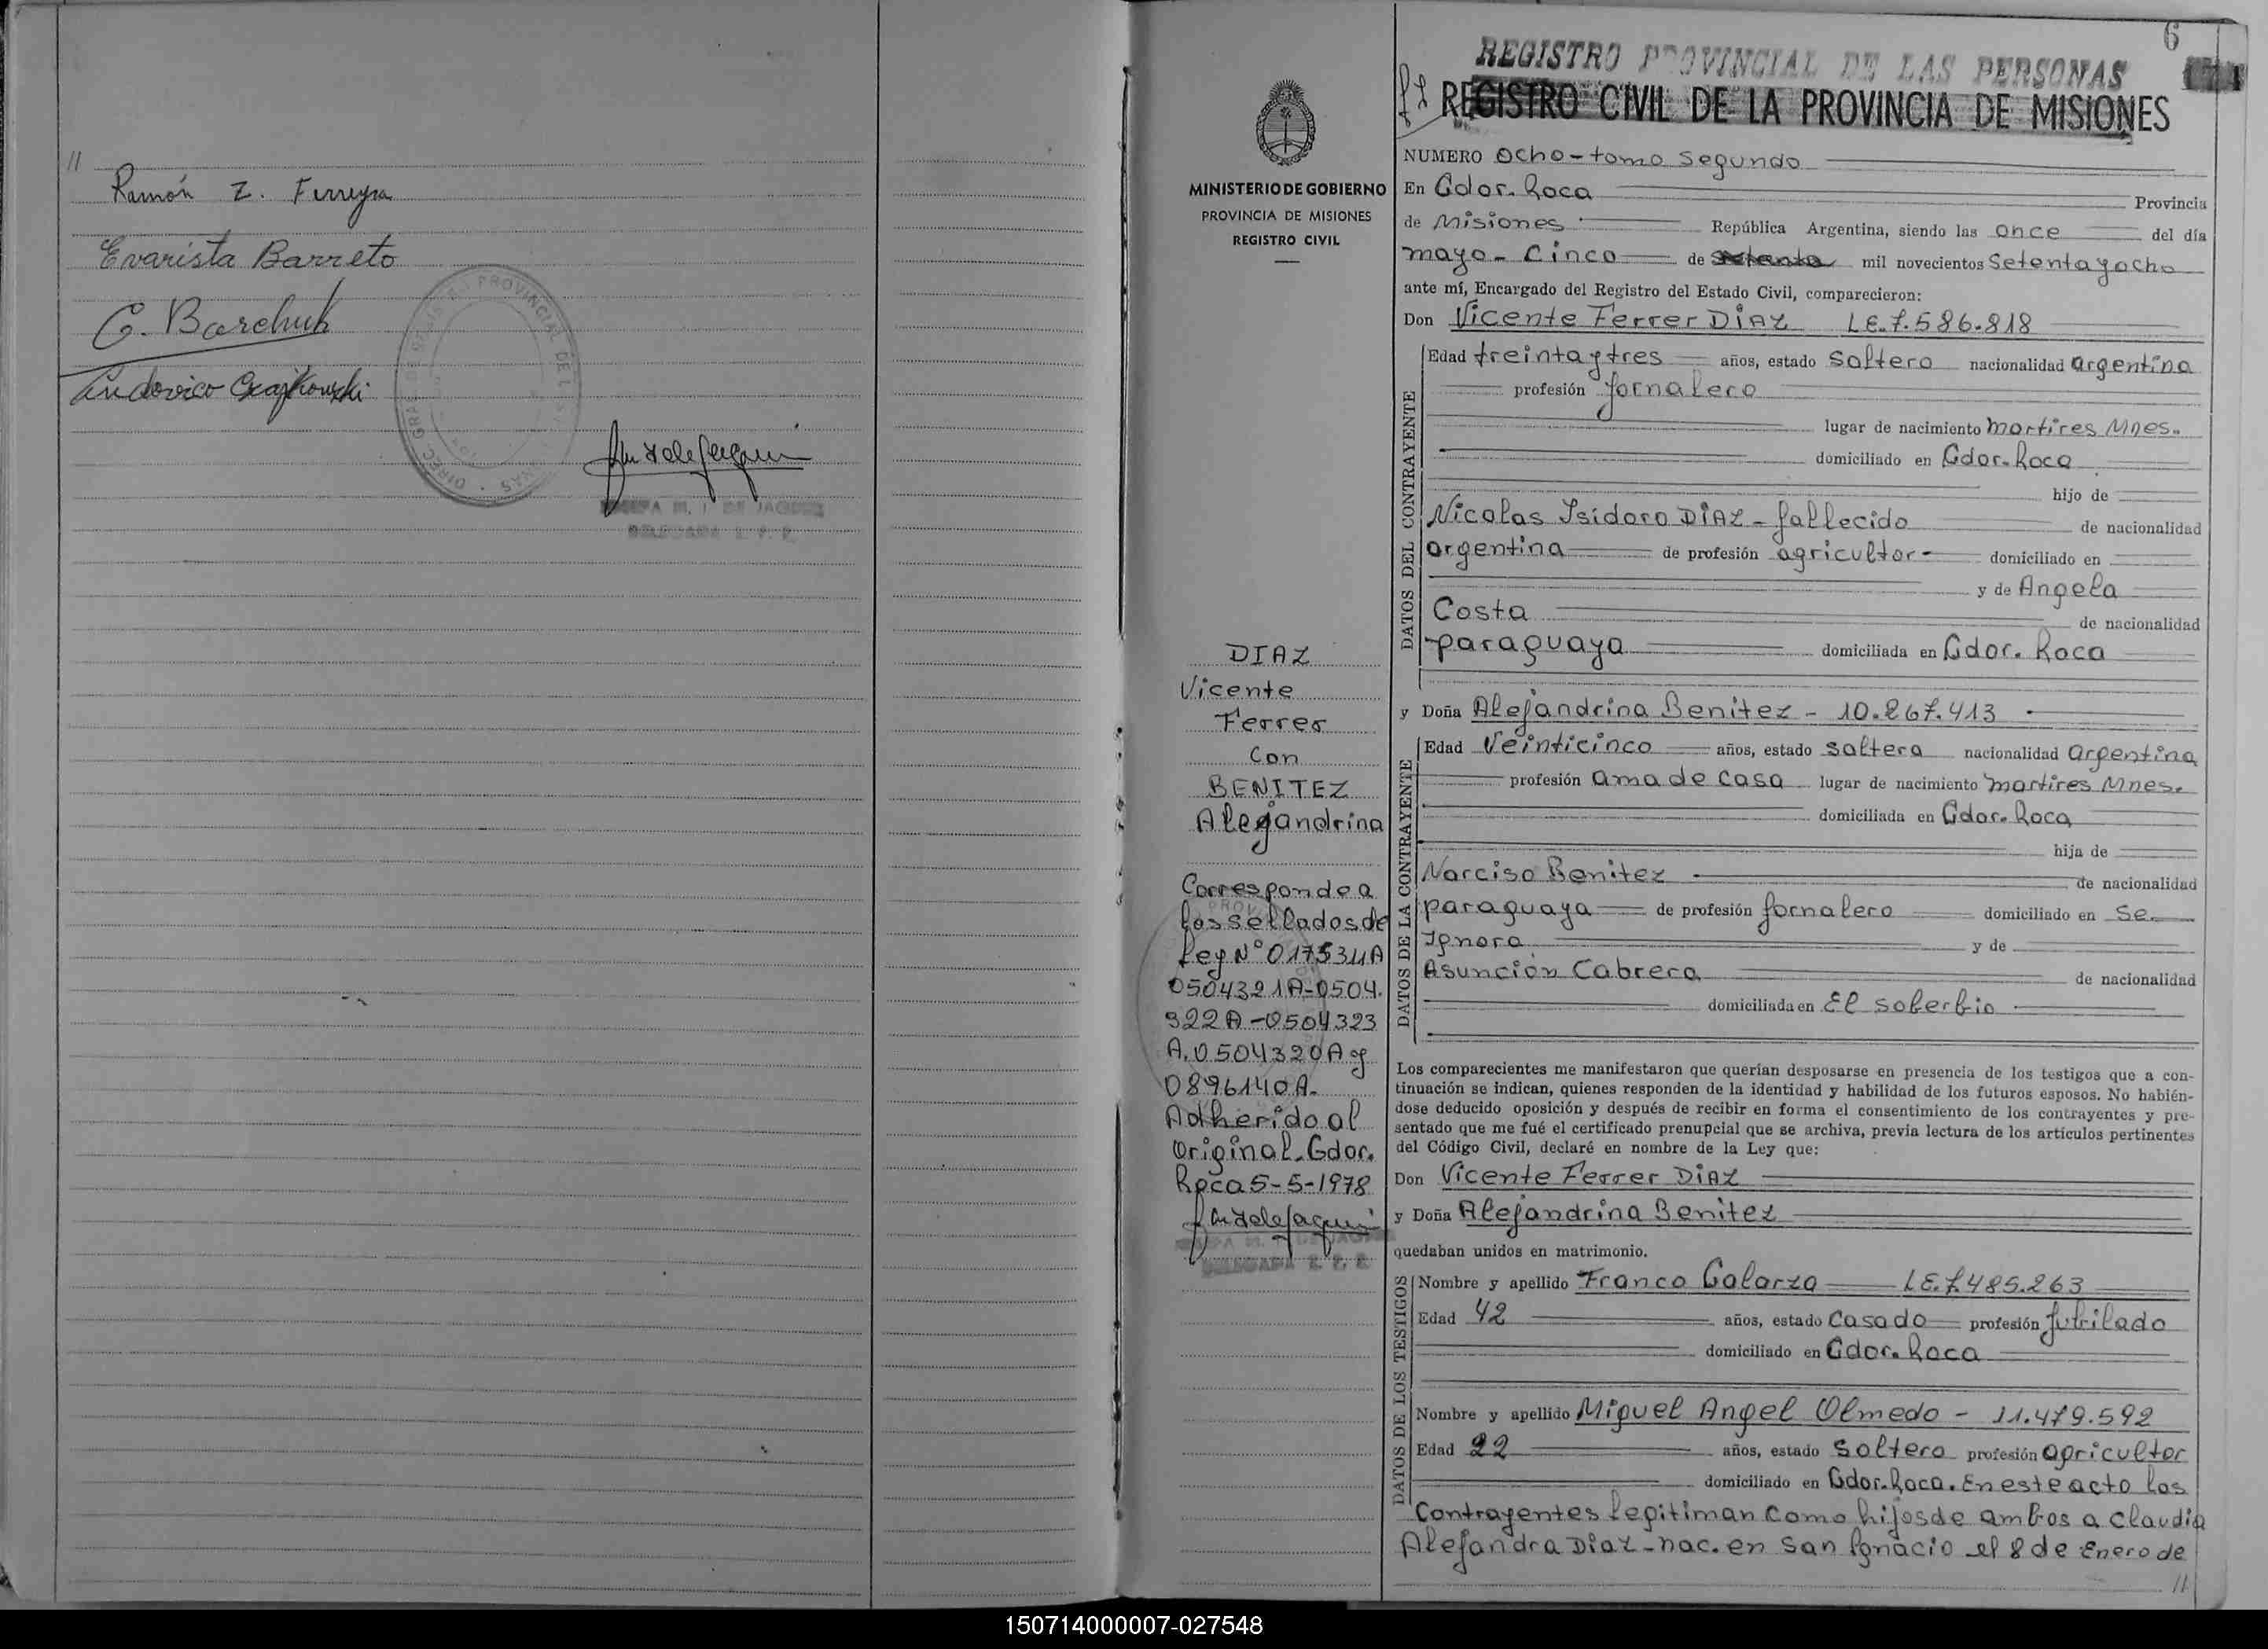 //
Ramón Z. Ferreyra
Evarista Barreto
G. Barchuk
Ludovico Czajkowski
DELEGADA R. P. P.
6
REGISTRO PROVINCIAL DE LAS PERSONAS
REGISTRO CIVIL DE LA PROVINCIA DE MISIONES
MINISTERIO DE GOBIERNO
PROVINCIA DE MISIONES
REGISTRO CIVIL
DIAZ
Vicente
Ferrer
Con
BENITEZ
Alejandrina
Corresponde a
los sellados de
ley N° 017534A
0504321A-0504.
322A-0504323
A.0504320A y
0896140A.
Adherido al
Original-Gdor.
Roca 5-5-1978
NUMERO Ocho-tomo segundo
En Gdor. Roca Provincia
de Misiones República Argentina, siendo las once del día
mayo- Cinco de mil novecientos Setenta y ocho
ante mí, Encargado del Registro del Estado Civil, comparecieron:
Don Vicente Ferrer DIAZ LE.7.586.818
DATOS DEL CONTRAYENTE
Edad treinta y tres años, estado soltero nacionalidad argentina
profesión jornalero
lugar de nacimiento martires Mnes.
domiciliado en Gdor. Roca
hijo de
Nicolas Isidoro DIAZ-fallecido de nacionalidad
argentina de profesión agricultor- domiciliado en
y de Angela
Costa de nacionalidad
paraguaya domiciliada en Gdor. Roca
y Doña Alejandrina Benitez - 10.267.413
DATOS DE LA CONTRAYENTE
Edad Veinticinco años, estado soltera nacionalidad argentina
profesión ama de casa lugar de nacimiento martires Mnes.
domiciliada en Gdor. Roca
hija de
Narciso Benitez de nacionalidad
paraguaya de profesión jornalero domiciliado en se
Ignora y de
Asunción Cabrera de nacionalidad
domiciliada en El soberbio
Los comparecientes me manifestaron que querían desposarse en presencia de los testigos que a con-
tinuación se indican, quienes responden de la identidad y habilidad de los futuros esposos. No habién-
dose deducido oposición y después de recibir en forma el consentimiento de los contrayentes y pre-
sentado que me fué el certificado prenupcial que se archiva, previa lectura de los artículos pertinentes
del Código Civil, declaré en nombre de la Ley que:
Don Vicente Ferrer DIAZ
y Doña Alejandrina Benitez
quedaban unidos en matrimonio.
DATOS DE LOS TESTIGOS
Nombre y apellido Franco Galarza LE.7.485.263
Edad 42 años, estado Casado profesión Jubilado
domiciliado en Gdor. Roca
Nombre y apellido Miguel Angel Olmedo - 11.479.592
Edad 22 años, estado Soltero profesión agricultor
domiciliado en Gdor. Roca. En este acto los
Contrayentes legitiman como hijos de ambos a claudia
Alejandra Diaz-nac. en San Ignacio el 8 de Enero de
//
150714000007-027548